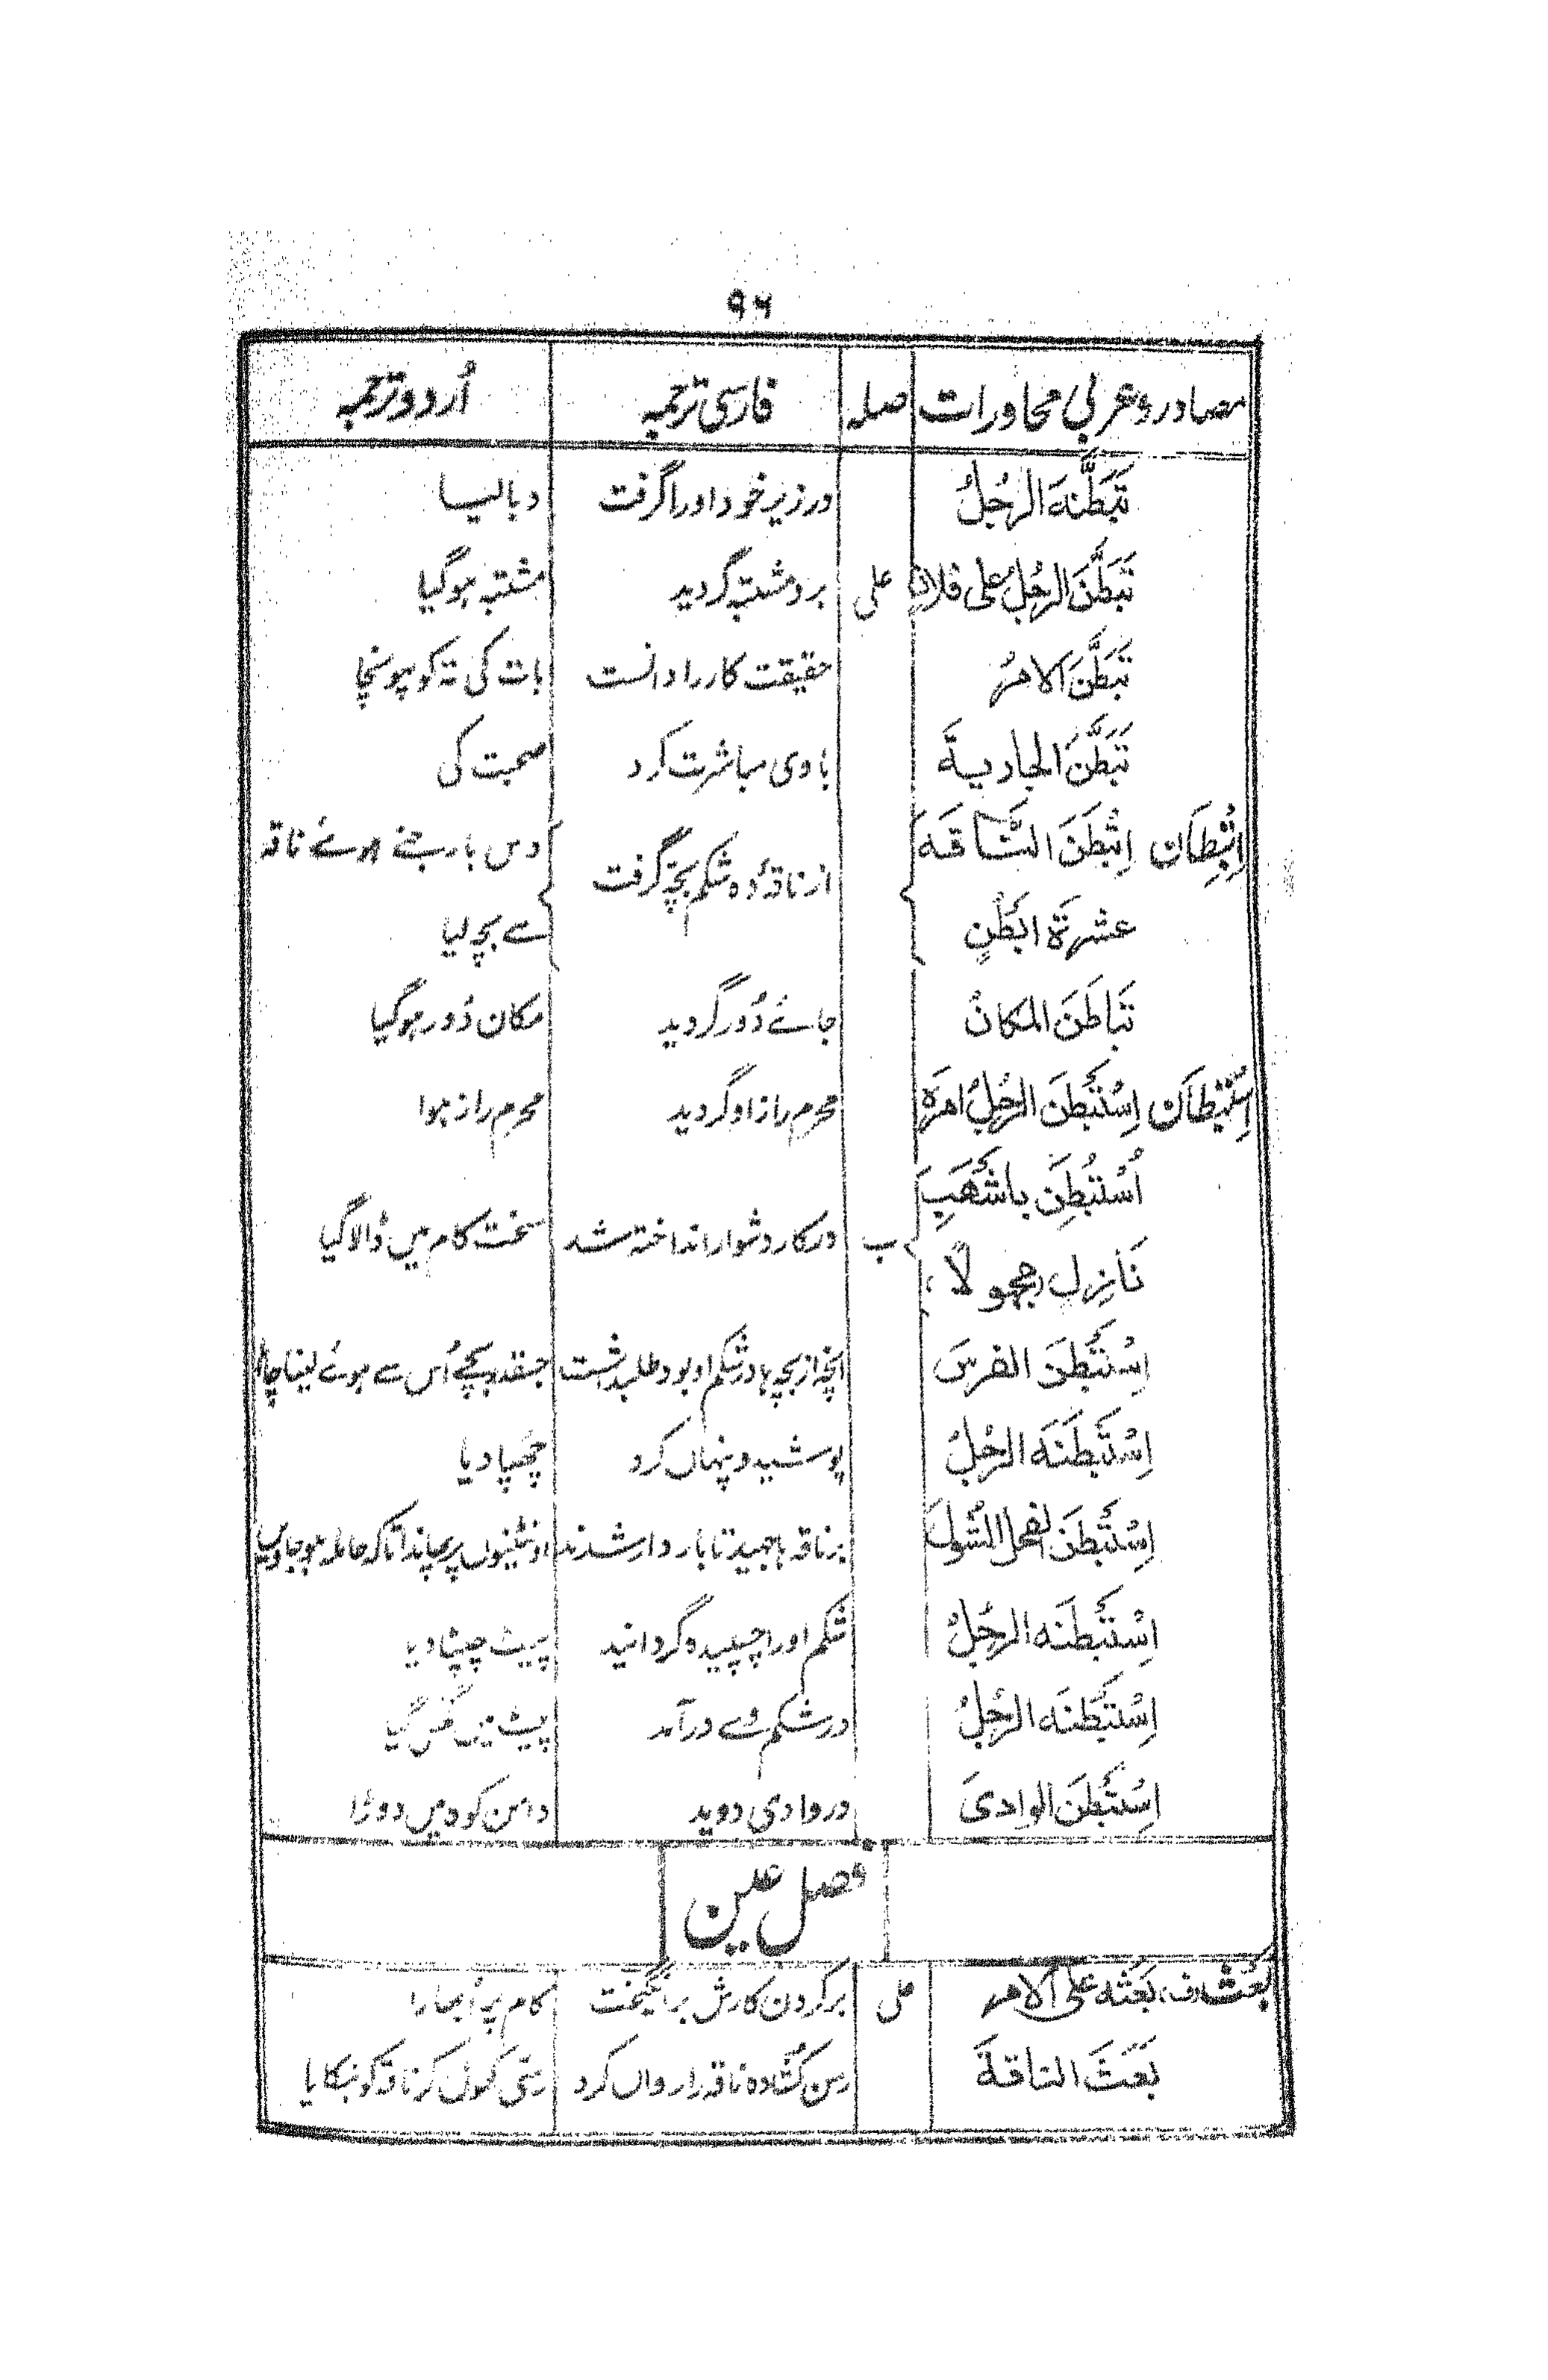 ۹۶
مصادر و عربی محاورات صلہ فارسی ترجمہ اُردو ترجمہ
تَبَطَّنَهَ الرجُلُ در زیر خود اورا گرفت دبا لیا
تَبَطَّنَ الرجُلُ علی فلان علی برو مشتبہ گردید مشتبہ ہوگیا
تَبَطَّنَ الامرُ حقیقت کار را دانست بات کی تہ کو پہونچا
تَبَطَّنَ الجاریةَ باوی مباشرت کرد صحبت کی
اِبْتِطَان اِبْتَطَنَ النَّاقَةَ از ناقہ دہ شکم بچہ گرفت دس بار جنے ہوئے ناقہ
عشرةَ ابْطُنٍ سے بچہ لیا
تَباطَنَ المکانُ جائے دُور گردید مکان دُور ہوگیا
اِسْتِبْطَان اِسْتَبْطَنَ الرجُلُ امرَہ محرم راز او گردید محرم راز ہوا
اُسْتُبْطِنَ باَشْهَبِ
نَازِلٍ (مجھولًا) ب در کار دشوار انداختہ شد سخت کام میں ڈالا گیا
اِسْتَبْطَنَ الفرسَ آنچہ از بچہ ہا در شکم او بود طلب داشت جسقدر بچے اُس سے ہوئے لینا چاہا
اِسْتَبْطَنَهَ الرجُلُ پوشید و پنہاں کرد چھپا دیا
اِسْتَبْطَنَ الفحلُ الشَّولَ بر ناقہ ہا جہید تا بار دار شدند اونٹنیوں پر چاندا تاکہ حاملہ ہو جاویں
اِسْتَبْطَنَه الرجُلُ شکم او را چسپیدہ گردانید پیٹ چپٹا دیا
اِسْتَبْطَنَه الرجُلُ در شکم وے درآمد پیٹ میں گھس گیا
اِسْتَبْطَنَ الوادیَ در وادی دوید دامن کوہ میں دوڑا
فصل عین
بَعْث (ف) بَعَثَه علی الامر علی بر کردن کارش برانگیخت کام پر اُبھارا
بَعَثَ الناقةَ رسن کشادہ ناقہ را رواں کرد رسّی کھول کر ناقہ کو ہنکایا